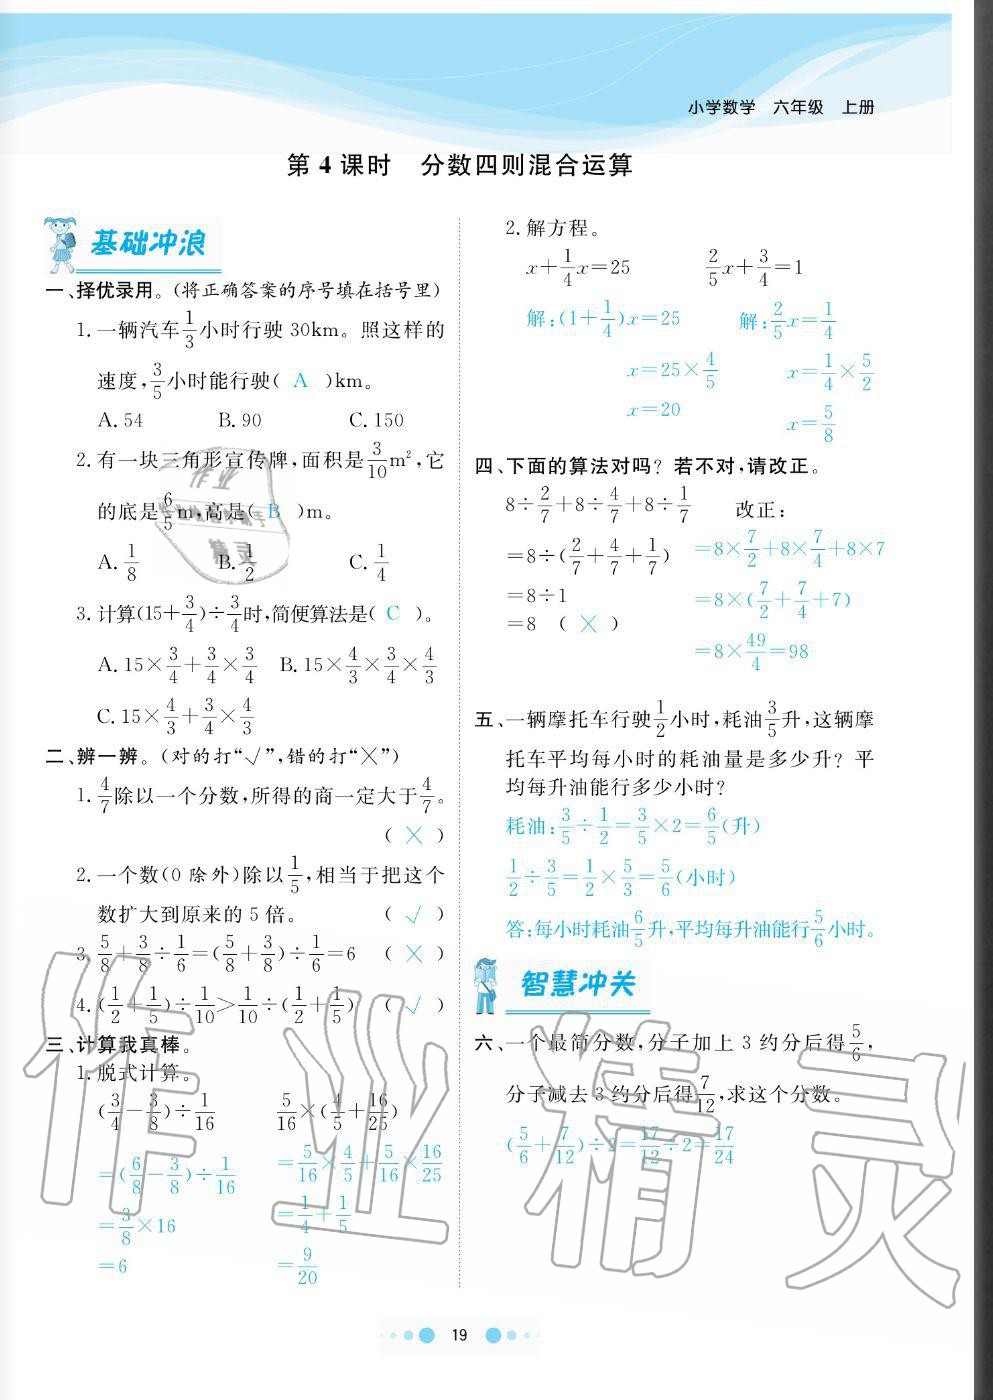 小学数学　六年级　上册
第 4 课时　分数四则混合运算
基础冲浪
一、择优录用。(将正确答案的序号填在括号里)
1. 一辆汽车1/3小时行驶 30km。照这样的
速度,3/5小时能行驶( A )km。
A. 54　B. 90　C. 150
2. 有一块三角形宣传牌,面积是3/10m²,它
的底是6/5m,高是( B )m。
A. 1/8　B. 1/2　C. 1/4
3. 计算(15+3/4)÷3/4时,简便算法是( C )。
A. 15×3/4+3/4×3/4　B. 15×4/3×3/4×4/3
C. 15×4/3+3/4×4/3
二、辨一辨。(对的打“√”,错的打“×”)
1. 4/7除以一个分数,所得的商一定大于4/7。
( × )
2. 一个数(0 除外)除以1/5,相当于把这个
数扩大到原来的 5 倍。　( √ )
3. 5/8+3/8÷1/6=(5/8+3/8)÷1/6=6　( × )
4. (1/2+1/5)÷1/10>1/10÷(1/2+1/5)　( √ )
三、计算我真棒。
1. 脱式计算。
(3/4-3/8)÷1/16　5/16×(4/5+16/25)
=(6/8-3/8)÷1/16　=5/16×4/5+5/16×16/25
=3/8×16　=1/4+1/5
=6　=9/20
2. 解方程。
x+1/4x=25　2/5x+3/4=1
解:(1+1/4)x=25　解:2/5x=1/4
x=25×4/5　x=1/4×5/2
x=20　x=5/8
四、下面的算法对吗? 若不对,请改正。
8÷2/7+8÷4/7+8÷1/7　改正:
=8÷(2/7+4/7+1/7)　=8×7/2+8×7/4+8×7
=8÷1　=8×(7/2+7/4+7)
=8　( × )　=8×49/4=98
五、一辆摩托车行驶1/2小时,耗油3/5升,这辆摩
托车平均每小时的耗油量是多少升? 平
均每升油能行多少小时?
耗油:3/5÷1/2=3/5×2=6/5(升)
1/2÷3/5=1/2×5/3=5/6(小时)
答:每小时耗油6/5升,平均每升油能行5/6小时。
智慧冲关
六、一个最简分数,分子加上 3 约分后得5/6,
分子减去 3 约分后得7/12,求这个分数。
(5/6+7/12)÷2=17/12÷2=17/24
19
作业精灵